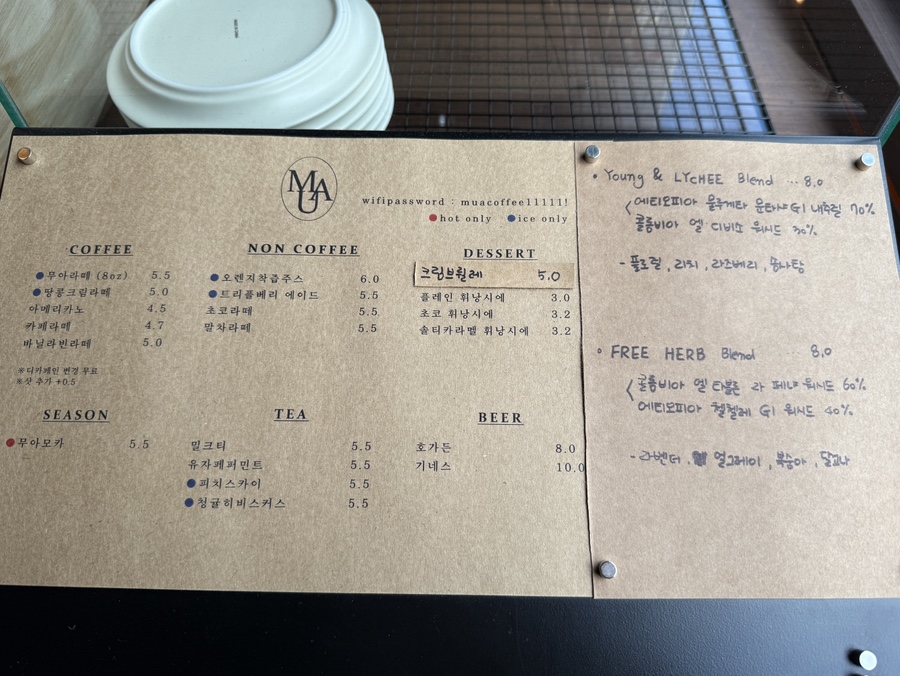 MUA
wifipassword : muacoffee11111!
hot only ice only
COFFEE
무아라떼 (8oz) 5.5
땅콩크림라떼 5.0
아메리카노 4.5
카페라떼 4.7
바닐라빈라떼 5.0
※디카페인 변경 무료
※샷 추가 +0.5
NON COFFEE
오렌지착즙주스 6.0
트리플베리 에이드 5.5
초코라떼 5.5
말차라떼 5.5
DESSERT
크림브륄레 5.0
플레인 휘낭시에 3.0
초코 휘낭시에 3.2
솔티카라멜 휘낭시에 3.2
SEASON
무아모카 5.5
TEA
밀크티 5.5
유자페퍼민트 5.5
피치스카이 5.5
청귤히비스커스 5.5
BEER
호가든 8.0
기네스 10.0
• Young & LYCHEE Blend ... 8.0
에티오피아 물루게타 문타샤 G1 내추럴 70%
콜롬비아 엘 디비소 워시드 30%
- 플로럴, 리치, 라즈베리, 솜사탕
• FREE HERB Blend 8.0
콜롬비아 엘 타블론 라 페냐 워시드 60%
에티오피아 첼첼레 G1 워시드 40%
- 라벤더, 얼그레이, 복숭아, 달고나